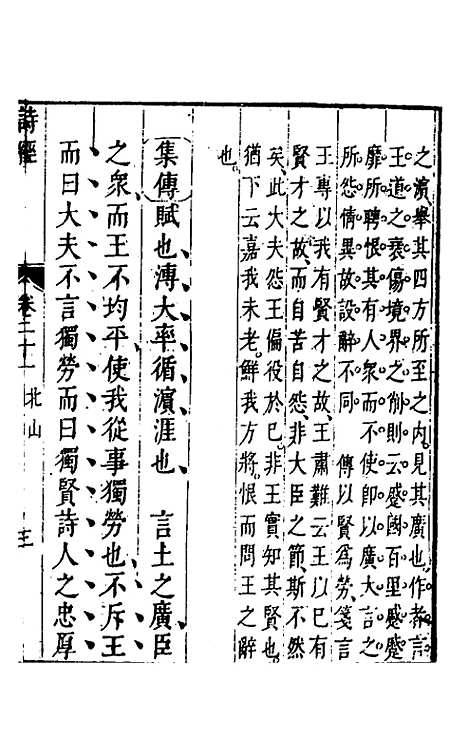 之濱舉其四方所至之內見其廣也作者言
王道之衰傷境界之削則云蹙國百里蹙蹙
靡所騁恨其有人衆而不使即以廣大言之
所怨情異故設辭不同　傳以賢爲勞箋言
王專以我有賢才之故王肅難云王以已有
賢才之故而自苦自怨非大臣之節斯不然
矣此大夫怨王偏役於已非王實知其賢也
猶下云嘉我未老鮮我方將恨而問王之辭
也
集傳賦也溥大率循濱涯也　言土之廣臣
之衆而王不均平使我從事獨勞也不斥王
而曰大夫不言獨勞而曰獨賢詩人之忠厚
詩經　卷二十一　北山　三